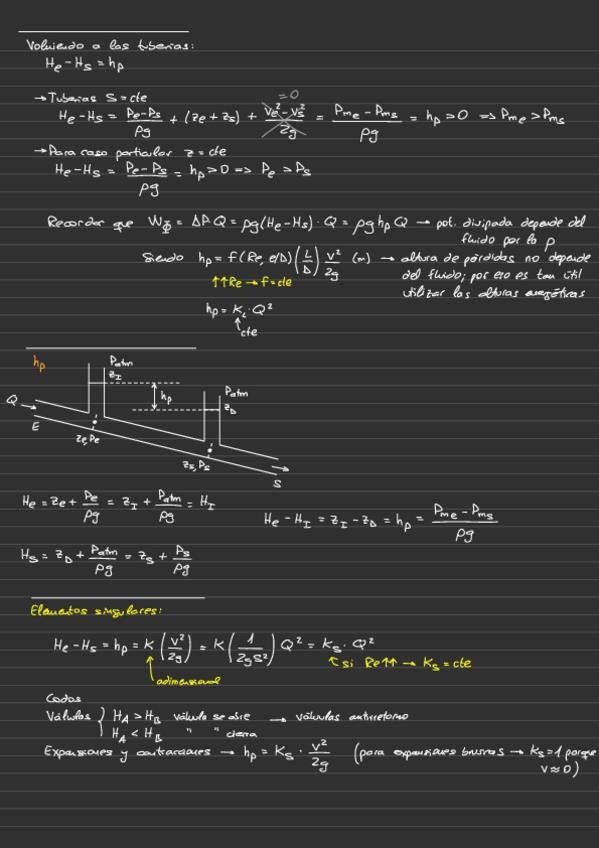 Volviendo a las tuberías:
He - Hs = hp
→ Tuberías S = cte
= 0
He - Hs = (Pe - Ps)/ρg + (ze + zs) + (Ve² - Vs²)/2g = (Pme - Pms)/ρg = hp > 0 ⇒ Pme > Pms
→ Para caso particular z = cte
He - Hs = (Pe - Ps)/ρg = hp > 0 ⇒ Pe > Ps
Recordar que WΦ = ΔP Q = ρg(He - Hs) · Q = ρg hp Q → pot. disipada depende del
fluido por la ρ
Siendo hp = f(Re, e/D) (L/D) V²/2g (m) → altura de pérdidas no depende
del fluido; por eso es tan útil
utilizar las alturas energéticas
↑↑Re → f = cte
hp = KL · Q²
cte
hp
Patm
zI
Patm
zD
hp
Q
E
ze, Pe
zs, Ps
S
He = ze + Pe/ρg = zI + Patm/ρg = HI
He - HI = zI - zD = hp = (Pme - Pms)/ρg
Hs = zD + Patm/ρg = zs + Ps/ρg
Elementos singulares:
He - Hs = hp = K (V²/2g) = K (1/2gS²) Q² = Ks · Q²
si Re↑↑ → Ks = cte
adimensional
Codos
Válvulas } HA > HB válvula se abre → válvulas antirretorno
HA < HB " " cierra
Expansiones y contracciones → hp = Ks · V²/2g (para expansiones bruscas → Ks = 1 porque
V ≈ 0)